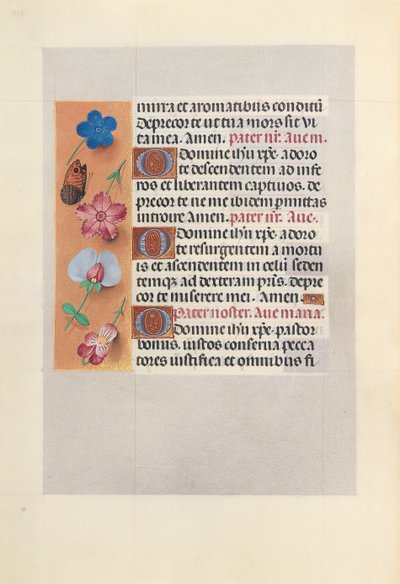 mirra et aromatibus conditū
Deprecor te ut tua mors sit vi
ta mea. Amen. pater nr̄. Aue m.
O Domine ihu xpe adoro
te descendentem ad infe
ros et liberantem captiuos. de
precor te ne me ibidem p̄mittas
introire Amen. pater nr̄. Aue.
O Domine ihu xpe adoro
te resurgentem a mortu
is et ascendentem in celū seden
temqȝ ad dexteram pr̄is. depre
cor te miserere mei. Amen.
Pater noster. Aue maria.
O Domine ihu xpe pastor
bonus. iustos conserua pecca
tores iustifica et omnibus fi